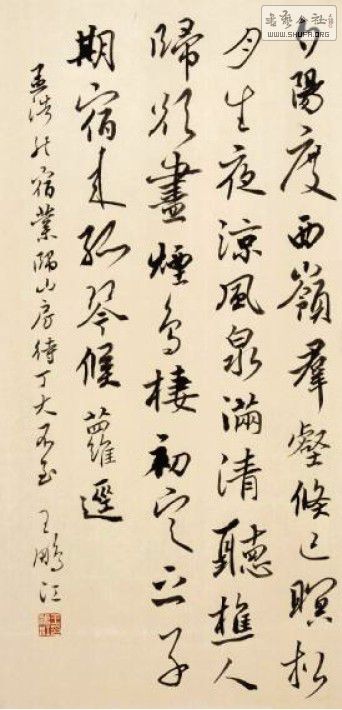 夕陽度西嶺羣壑倏已瞑松
月生夜涼風泉滿清聽樵人
歸欲盡煙鳥棲初定之子
期宿来孤琴候蘿逕
孟浩然宿業師山房待丁大不至 王鵬江
書藝公社
WWW.SHUFA.ORG